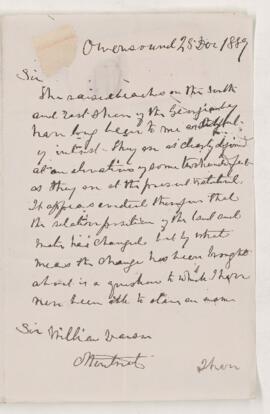 Owensound 28 Dec 1889
Sir
The raised beaches on the South
and East Shore of the Georgian Bay
have long been to me
of interest. They are as clearly defined
at an elevation of some two hundred feet
as they are at the present water level.
It appears evident that
the relative position of the land and
water has changed but by what
means the change has been brought
about is a question to which I have
never been able to obtain an answer
Sir William Dawson
Montreal
I have